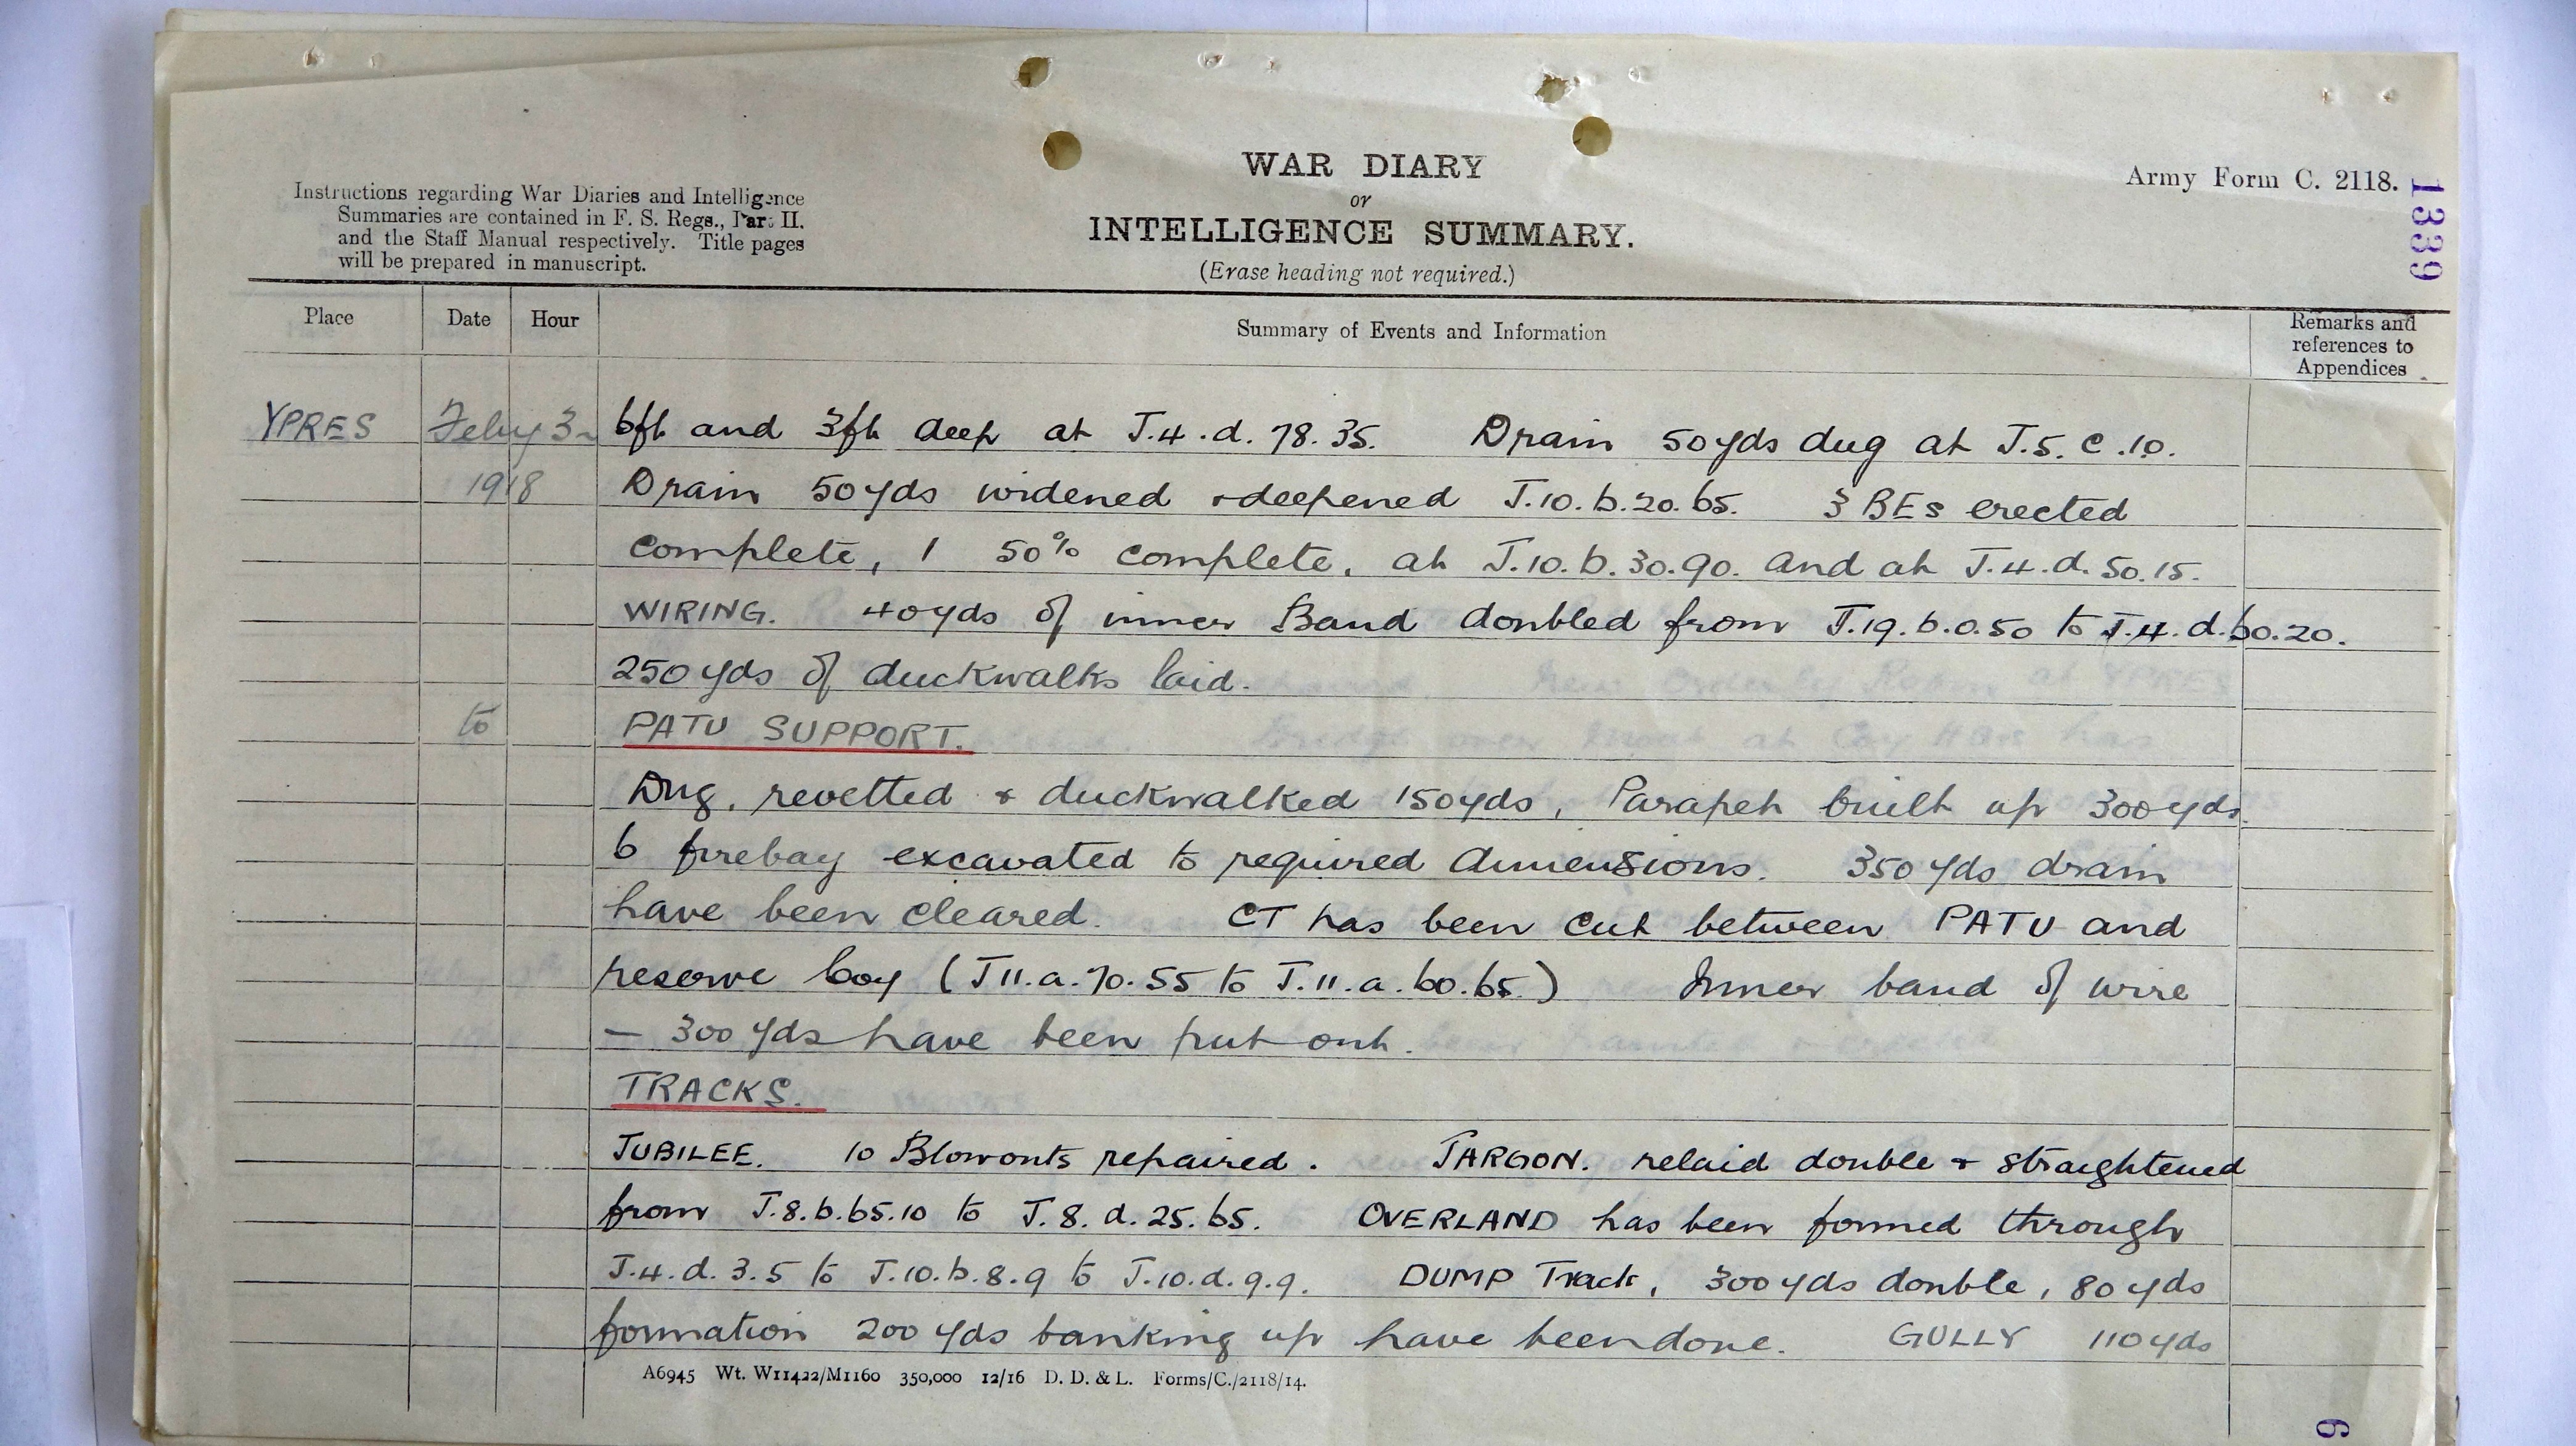 WAR DIARY
or
INTELLIGENCE SUMMARY.
(Erase heading not required.)
Army Form C. 2118.
1339
Instructions regarding War Diaries and Intelligence
Summaries are contained in F. S. Regs., Part II.
and the Staff Manual respectively. Title pages
will be prepared in manuscript.
Place Date Hour Summary of Events and Information Remarks and references to Appendices
YPRES Feby 3 6ft and 3ft deep at J.4.d.78.35. Drain 50yds dug at J.5.c.10.
1918 Drain 50yds widened & deepened J.10.b.20.65. 3 BEs erected
complete, 1 50% complete, at J.10.b.30.90. and at J.4.d.50.15.
WIRING. 40yds of inner Band doubled from J.19.b.0.50 to J.4.d.60.20.
250yds of duckwalks laid.
to PATU SUPPORT.
Dug, revetted & duckwalked 150yds, Parapet built up 300yds
6 firebay excavated to required dimensions. 350yds drain
have been cleared. CT has been cut between PATU and
reserve Coy (J11.a.70.55 to J.11.a.60.65.) Inner band of wire
— 300yds have been put out.
TRACKS.
JUBILEE. 10 Blowouts repaired. JARGON. relaid double & straightened
from J.8.b.65.10 to J.8.d.25.65. OVERLAND has been formed through
J.4.d.3.5 to J.10.b.8.9 to J.10.d.9.9. DUMP Track, 300yds double, 80yds
formation 200yds banking up have been done. GULLY 110yds
A6945 Wt. W11422/M1160 350,000 12/16 D. D. & L. Forms/C./2118/14.
6